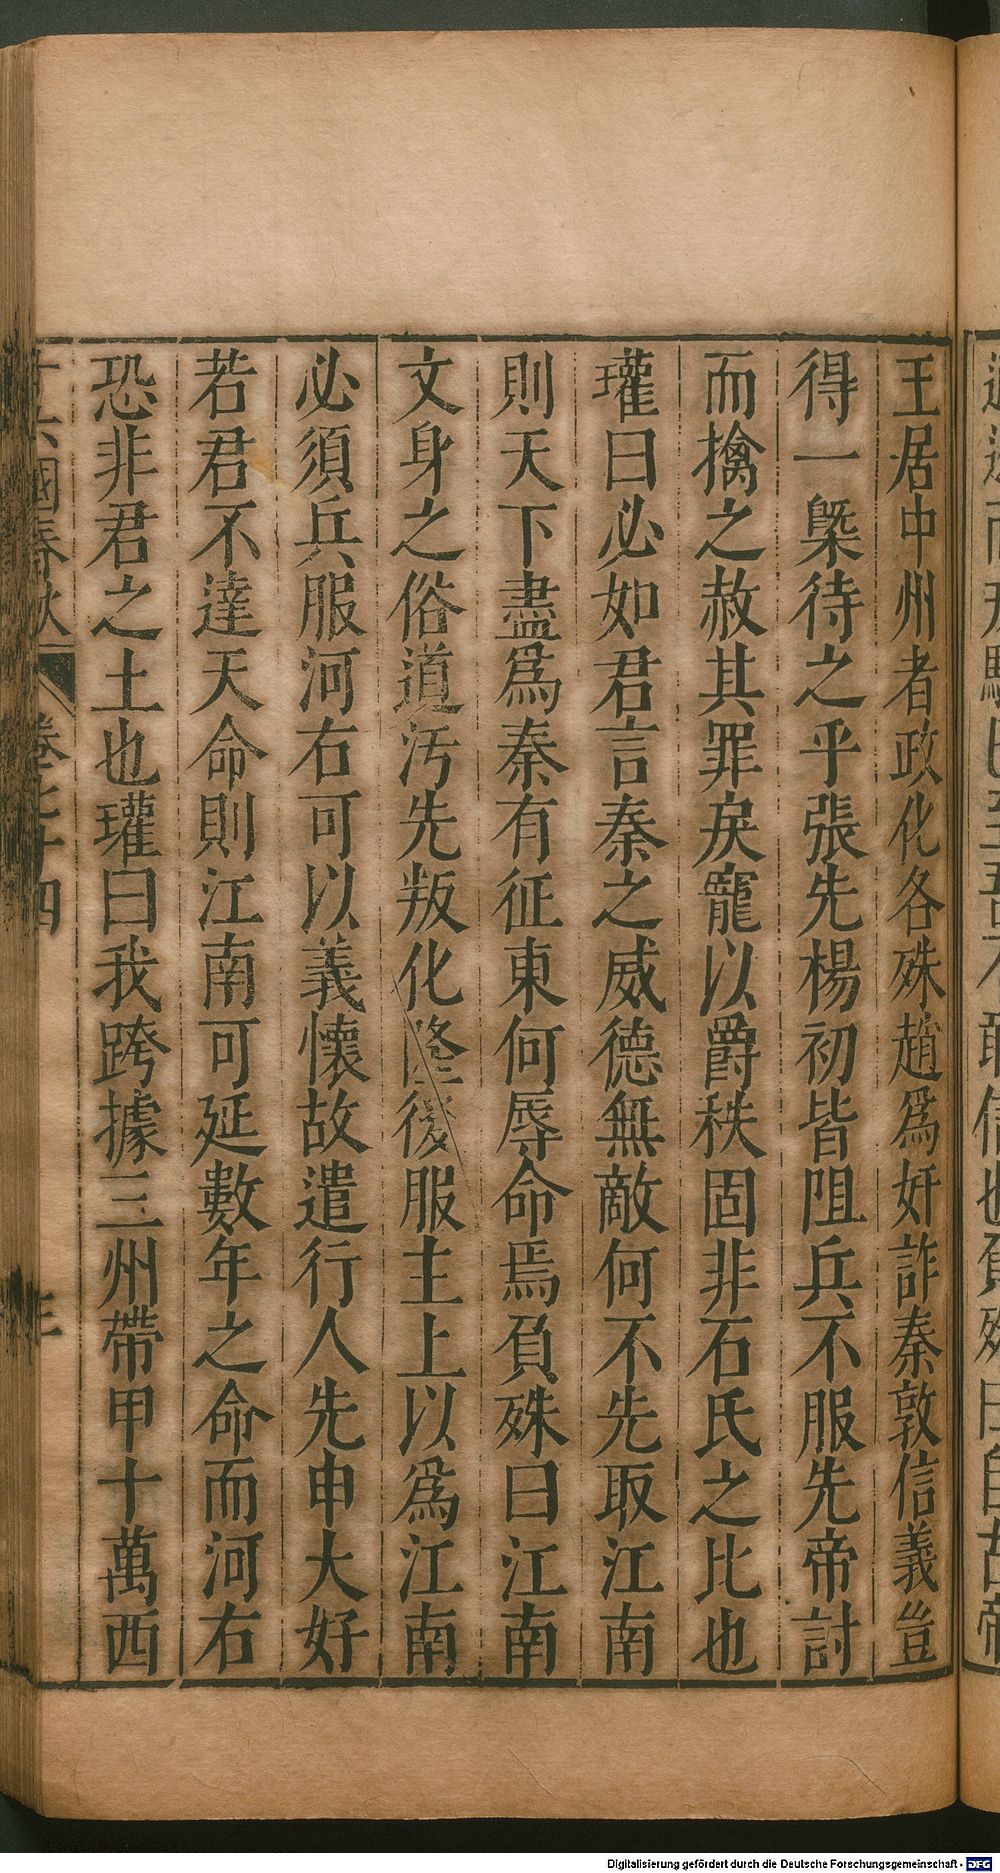 王居中州者政化各殊趙爲奸詐秦敦信義豈
得一槩待之乎張先楊初皆阻兵不服先帝討
而擒之赦其罪戾寵以爵秩固非石氏之比也
瓘曰必如君言秦之威德無敵何不先取江南
則天下盡爲秦有征東何辱命焉負殊曰江南
文身之俗道汚先叛化隆後服主上以爲江南
必須兵服河右可以義懷故遣行人先申大好
若君不達天命則江南可延數年之命而河右
恐非君之土也瓘曰我跨據三州帶甲十萬西
十六國春秋 卷七十四
Digitalisierung gefördert durch die Deutsche Forschungsgemeinschaft - DFG